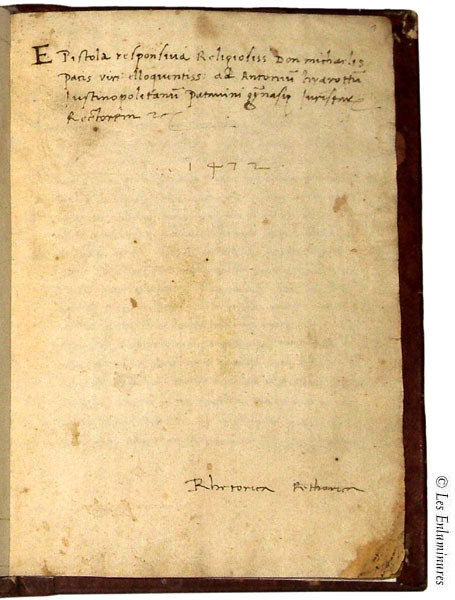 EPistola responsiva Religiosiss Don michaelis
Pacis viri elloquentiss: ad Antonium
Justinopolitanum Patavini gymnasij Jurispru
Rectorem
1472
Rhetorica Rethorica
© Les Enluminures